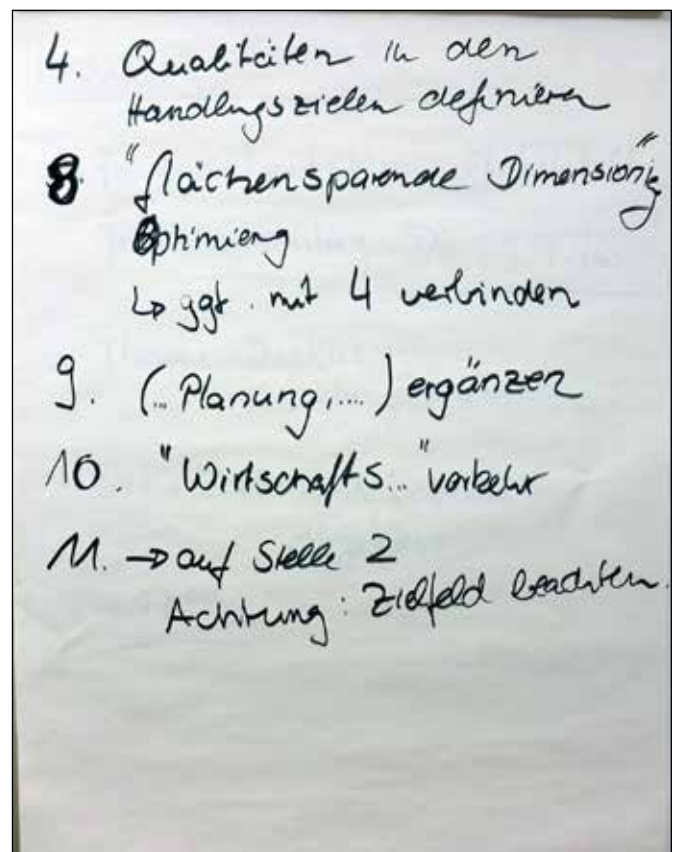 4. Qualitäten in den
Handlungszielen definieren
8. "flächensparende Dimensionig"
Optimierg
↳ ggf. mit 4 verbinden
9. (... Planung, ....) ergänzen
10. "Wirtschafts..."verkehr
11. → auf Stelle 2
Achtung: Zielfeld beachten.